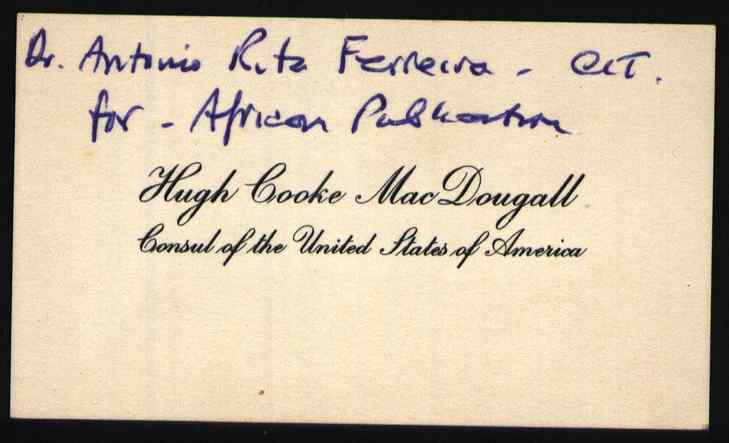 Dr. Antonio Rita Ferreira - CIT.
for - African Publication
Hugh Cooke MacDougall
Consul of the United States of America